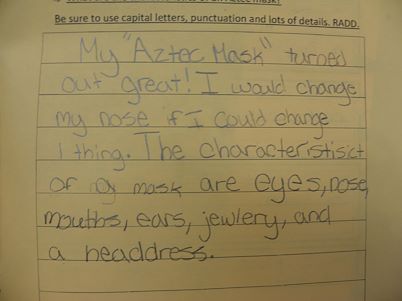 Aztec Mask?
Be sure to use capital letters, punctuation and lots of details. RADD.
My "Aztec Mask" turned
out great! I would change
my nose if I could change
1 thing. The characteristisict
of my mask are eyes, nose,
mouths, ears, jewlery, and
a headdress.